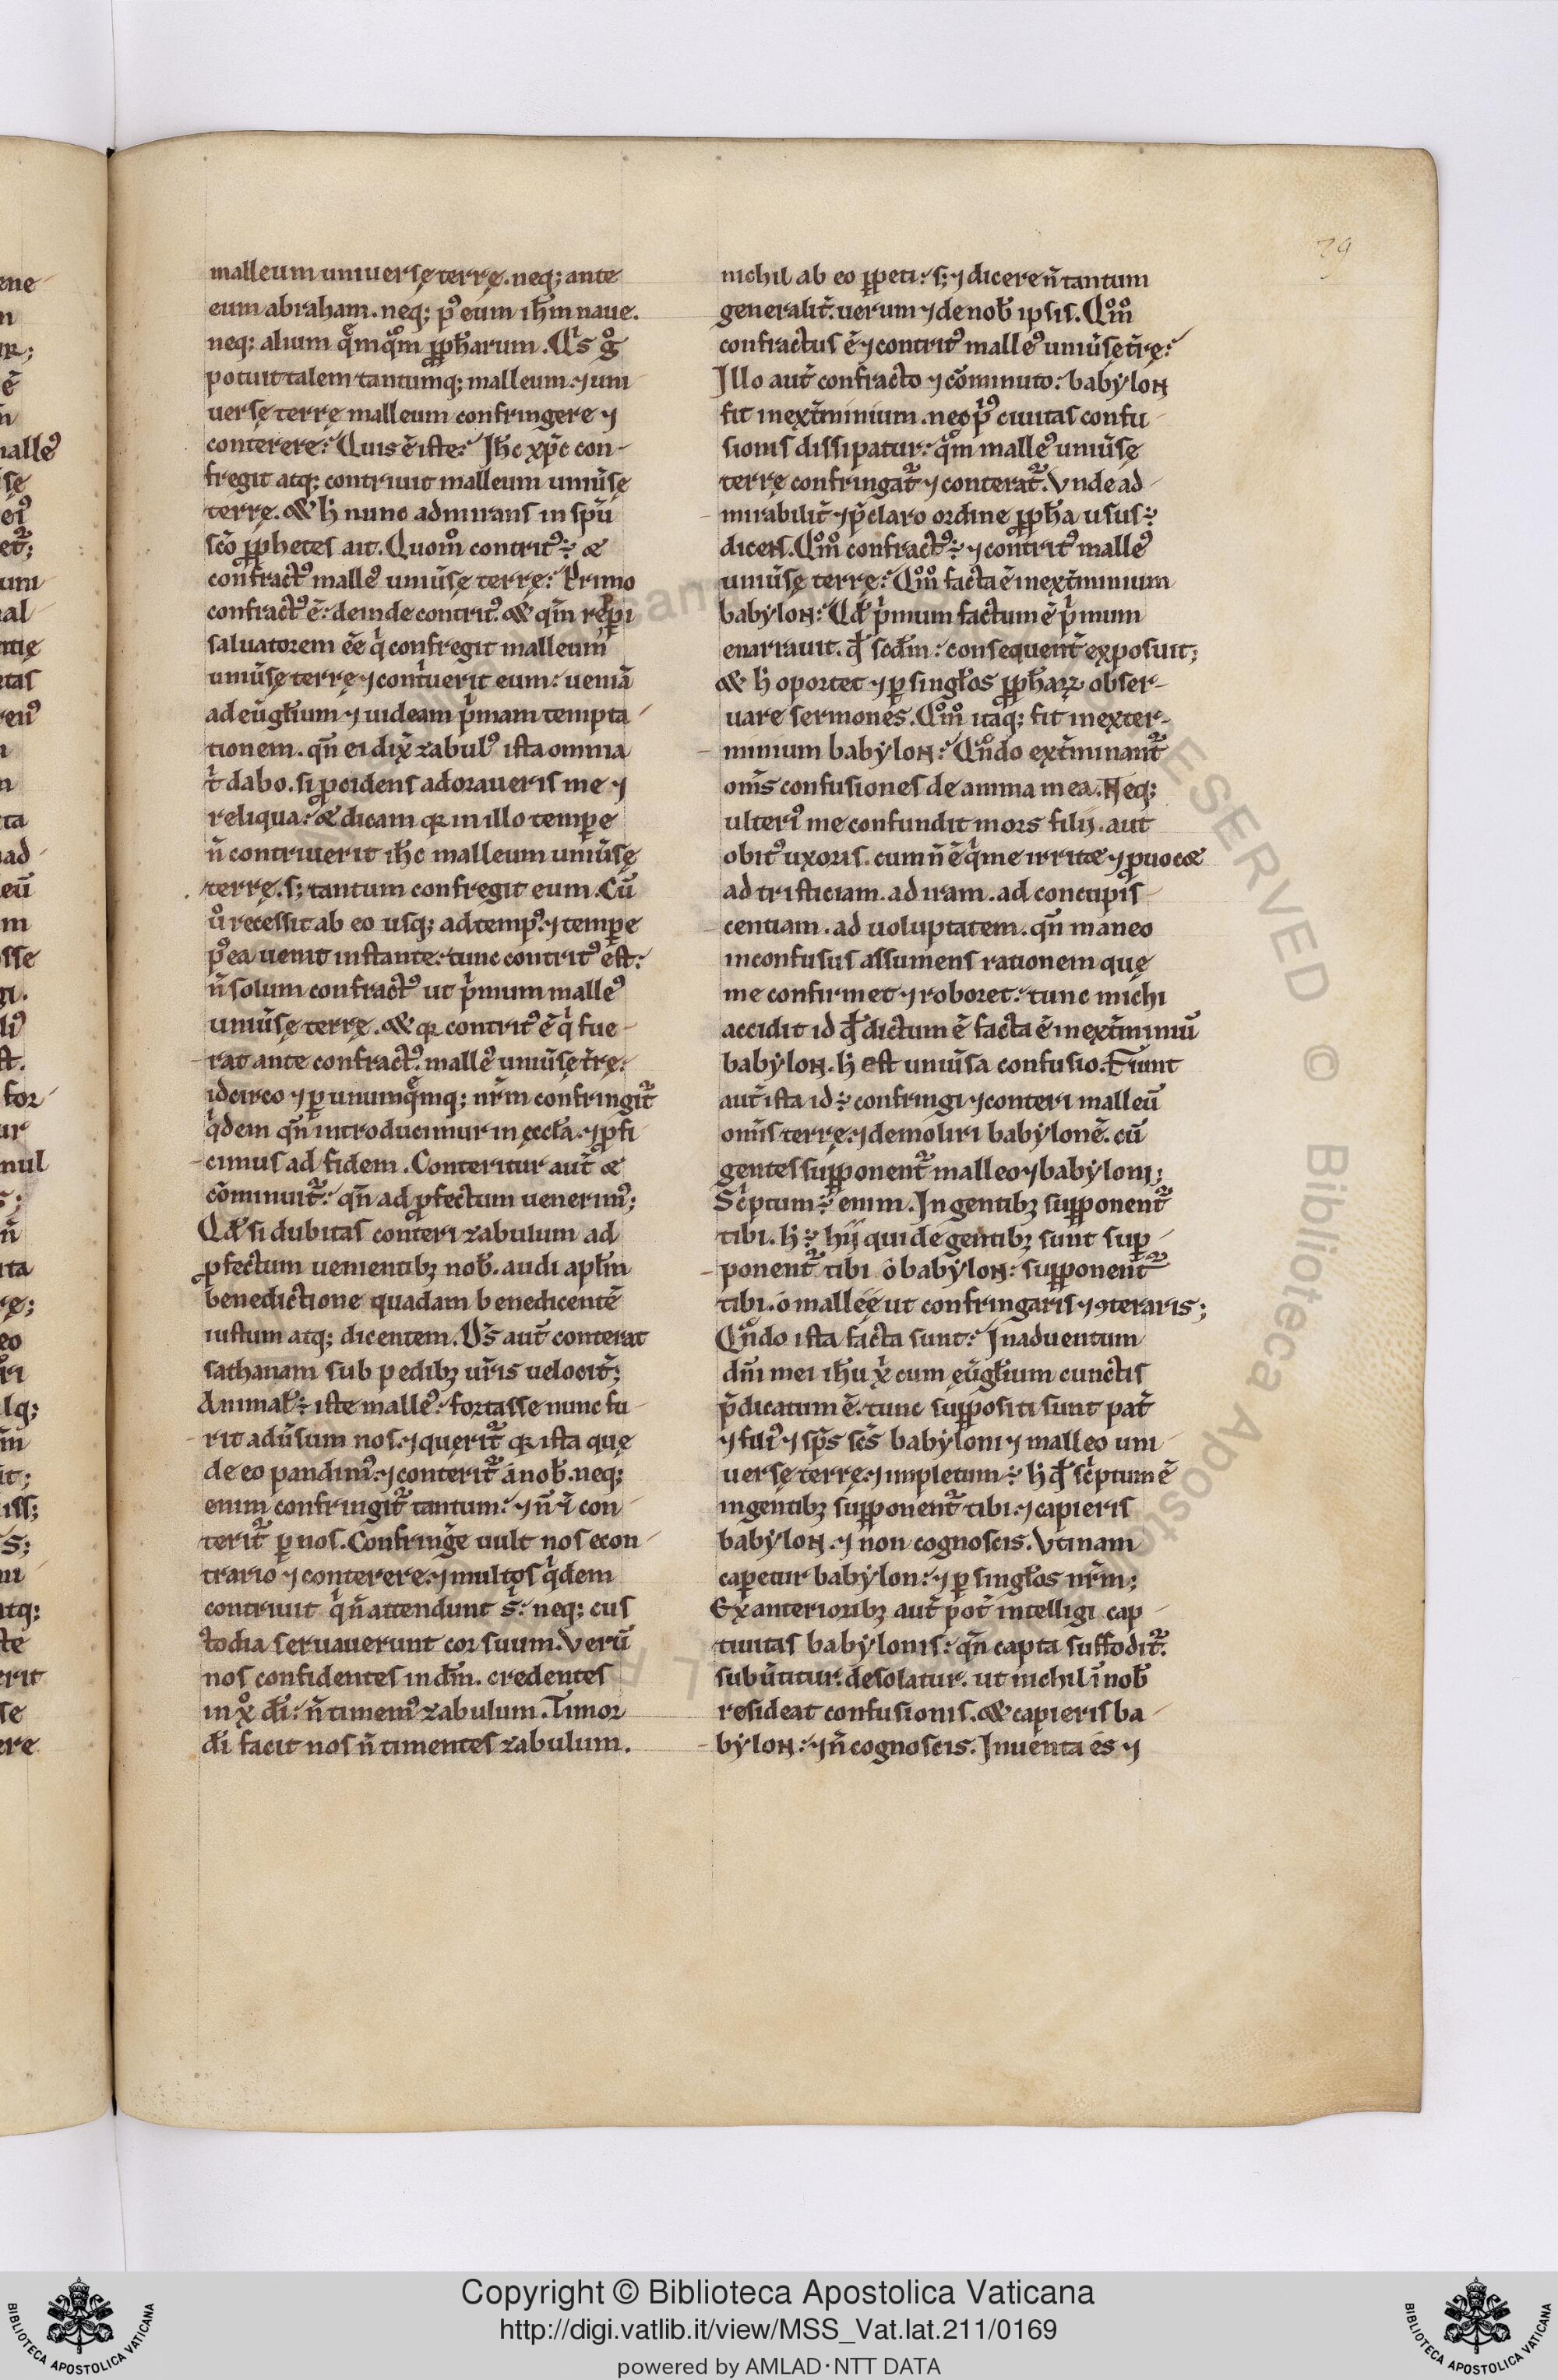 malleum uniuersę terrę. neq; ante
eum abraham. neq; p᷒ eum ih̄m naue.
neq; alium quēmqͦm ꝓph̄arum. Qͥs gͦ
potuit talem tantumq; malleum. ⁊ uni
uersę terrę malleum confringere ⁊
conterere? Quis ē iste? Ih̄c xp̄c con-
fregit atq; contriuit malleum uniūsę
terrę. & h̄ nunc admirans in sp̄u
sc̄o ꝓphetes ait. Quomͦ contritꝰ ÷ &
confractꝰ malleꝰ uniūsę terrę? Primo
confractꝰ ē: deinde contritꝰ. & qm̄ reꝑi
saluatorem ēē qͥ confregit malleum
uniūsę terrę ⁊ contͥuerit eum: ueniā
ad eūgl̄ium ⁊ uideam pͥmam tempta
tionem. qn̄ ei dix̄ zabulꝰ ista omnia
tͥ dabo. si ꝓcidens adoraueris me ⁊
reliqua: & dicam qꝛ in illo temꝑe
n̄ contriuerit ih̄c malleum uniūsę
terrę. s; tantum confregit eum. Cū
uͦ recessit ab eo usq; ad tempꝰ. ⁊ temꝑe
p᷒ea uenit instante: tunc contritꝰ est:
n̄ solum confractꝰ ut pͥmum malleꝰ
uniūsę terrę. & qꝛ contritꝰ ē qͥ fue-
rat ante confractꝰ. malleꝰ uniūsę t̄rę:
idcirco ⁊ ꝑ unumqͤmq; nr̄m confringit᷑
qͥdem qn̄ introducimur in ęccl̄a. ⁊ ꝓfi
cimus ad fidem. Conteritur aut̄ &
cōminuit᷑: qn̄ ad ꝓfectum uenerimꝰ;
Qd̄ si dubitas conteri zabulum ad
ꝓfectum uenientibꝫ nob̄. audi apl̄m
benedictione quadam benedicentē
iustum atq; dicentem. Ds̄ aut̄ conterat
sathanam sub pedibꝫ ur̄is uelocit̄;
Animal̄ ÷ iste malleꝰ: fortasse nunc fu
rit adūsum nos. ⁊ querit᷑ qꝛ ista quę
de eo pandimꝰ. ⁊ conterit᷑ a nob̄. neq;
enim confringit᷑ tantum: ⁊ n̄ ⁊ con
terit᷑ ꝑ nos. Confringe uult nos econ
trario ⁊ conterere. ⁊ multos qͥdem
contriuit qͥ n̄ attendunt s̄: neq; cus
todia seruauerunt cor suum. Verū
nos confidentes in dm̄. credentes
in xͦ dī: n̄ timemꝰ zabulum. Timor
dī facit nos n̄ timentes zabulum.
nichil ab eo ꝑpeti: s; ⁊ dicere n̄ tantum
generalit̄. uerum ⁊ de nob̄ ipsis. Qͦmͦ
confractus ē ⁊ contritꝰ malleꝰ uniūsę t̄rę?
Illo aut̄ confracto ⁊ cōminuto: babylon
fit in ext̄minium. nec pͥꝰ ciuitas confu
sionis dissipatur: qͣm malleꝰ uniūsę
terrę confringat᷑ ⁊ conterat᷑. Vnde ad
mirabilit̄ ⁊ p̄claro ordine ꝓph̄a usus ÷
dicens. Qͦmͦ confractꝰ ÷ ⁊ contritꝰ malleꝰ
uniūsę terrę? Qͦmͦ facta ē in ext̄minium
babylon? Qd̄ pͥmum factum ē pͥmum
enarrauit. qd̄ scd̄m: consequent̄ exposuit;
& h̄ oportet ⁊ ꝑ singl̄os ꝓph̄aꝝ obser-
uare sermones. Qͦmͦ itaq; fit in exter-
minium babylon? Qn̄do ext̄minant᷑
om̄s confusiones de anima mea. Neq;
ulteriꝰ me confundit mors filij. aut
obitꝰ uxoris. cum n̄ ē qͥ me irritet ⁊ ꝓuocet
ad tristiciam. ad iram. ad concupis
centiam. ad uoluptatem. qn̄ maneo
inconfusus assumens rationem quę
me confirmet ⁊ roboret: tunc michi
accidit id qd̄ dictum ē facta ē in ext̄miniū
babylon. h̄ est uniūsa confusio. Fiunt
aut̄ ista id ÷ confringi ⁊ conteri malleū
om̄s terrę. ⁊ demoliri babylonē. cū
gentes supponent᷑ malleo ⁊ babyloni;
Scͥptum ÷ enim. In gentibꝫ supponent᷑
tibi. h̄ ÷ hij qui de gentibꝫ sunt sup
ponent᷑ tibi o babylon: supponent᷑
tibi. o malleę ut confringaris ⁊ ꝯteraris;
Qn̄do ista facta sunt? In aduentum
dn̄i mei ih̄u xͥ cum eūgl̄ium cunctis
p̄dicatum ē. tunc suppositi sunt pat̄
⁊ filiꝰ ⁊ sp̄s sc̄s babyloni ⁊ malleo uni
uersę terrę. ⁊ impletum ÷ h̄ qd̄ scͥptum ē
in gentibꝫ supponent᷑ tibi. ⁊ capieris
babylon. ⁊ non cognoscis. Vtinam
caperetur babylon: ⁊ ꝑ singl̄os nr̄m;
Ex anterioribꝫ aut̄ pot̄ intelligi cap
tiuitas babylonis: qn̄ capta suffodit᷑.
subūtitur. desolatur. ut nichil ī nob̄
resideat confusionis. & capieris ba
bylon: ⁊ n̄ cognoscis. Inuenta es ⁊
29
Copyright © Biblioteca Apostolica Vaticana
http://digi.vatlib.it/view/MSS_Vat.lat.211/0169
powered by AMLAD·NTT DATA
BIBLIOTECA APOSTOLICA VATICANA
BIBLIOTECA APOSTOLICA VATICANA